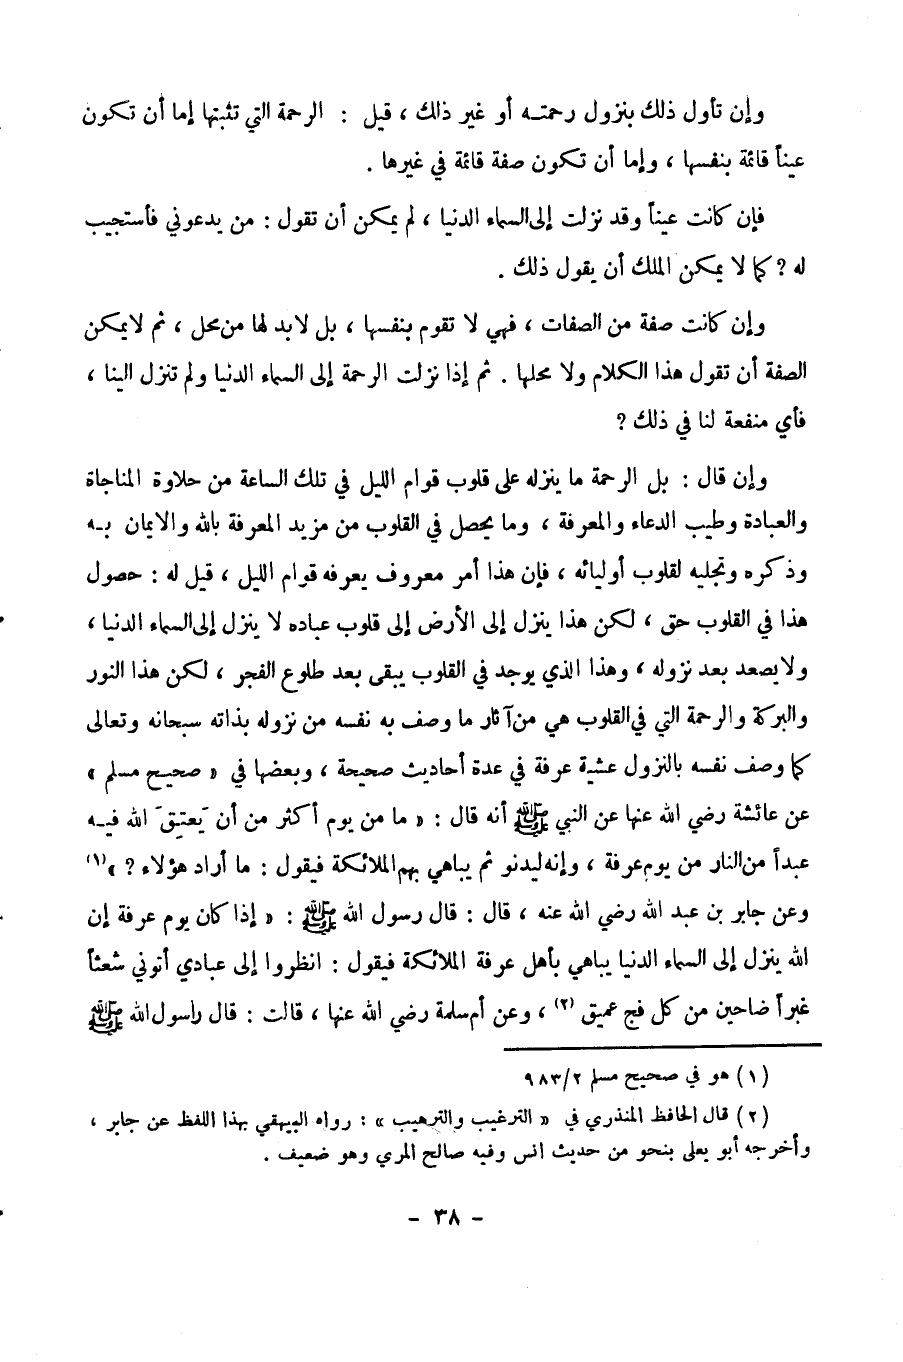 وإن تأول ذلك بنزول رحمتـه أو غير ذلك ، قيل : الرحمة التي تثبتها إما أن تكون
عيناً قائمة بنفسها ، وإما أن تكون صفة قائمة في غيرها .
فإن كانت عيناً وقد نزلت إلى السماء الدنيا ، لم يمكن أن تقول : من يدعوني فأستجيب
له ؟ كما لا يمكن الملك أن يقول ذلك .
وإن كانت صفة من الصفات ، فهي لا تقوم بنفسها ، بل لابد لها من محل ، ثم لايمكن
الصفة أن تقول هذا الكلام ولا محلها . ثم إذا نزلت الرحمة إلى السماء الدنيا ولم تنزل الينا ،
فأي منفعة لنا في ذلك ؟
وإن قال : بل الرحمة ما ينزله على قلوب قوام الليل في تلك الساعة من حلاوة المناجاة
والعبادة وطيب الدعاء والمعرفة ، وما يحصل في القلوب من مزيد المعرفة بالله والايمان بـه
وذكره وتجليه لقلوب أوليائه ، فإن هذا أمر معروف يعرفه قوام الليل ، قيل له : حصول
هذا في القلوب حق ، لكن هذا ينزل إلى الأرض إلى قلوب عباده لا ينزل إلى السماء الدنيا ،
ولا يصعد بعد نزوله ، وهذا الذي يوجد في القلوب يبقى بعد طلوع الفجر ، لكن هذا النور
والبركة والرحمة التي في القلوب هي من آثار ما وصف به نفسه من نزوله بذاته سبحانه وتعالى
كما وصف نفسه بالنزول عشية عرفة في عدة أحاديث صحيحة ، وبعضها في « صحيح مسلم »
عن عائشة رضي الله عنها عن النبي ﷺ أنه قال : « ما من يوم أكثر من أن يَعتِقَ الله فيـه
عبداً من النار من يوم عرفة ، وإنه ليدنو ثم يباهي بهم الملائكة فيقول : ما أراد هؤلاء ؟ » (١)
وعن جابر بن عبد الله رضي الله عنه ، قال : قال رسول الله ﷺ : « إذا كان يوم عرفة إن
الله ينزل إلى السماء الدنيا يباهي بأهل عرفة الملائكة فيقول : انظروا إلى عبادي أتوني شُعثاً
غبراً ضاحين من كل فج عميق (٢) ، وعن أم سلمة رضي الله عنها ، قالت : قال رسول الله ﷺ
(١) هو في صحيح مسلم ٩٨٣/٢
(٢) قال الحافظ المنذري في « الترغيب والترهيب » : رواه البيهقي بهذا اللفظ عن جابر ،
وأخرجه أبو يعلى بنحو من حديث انس وفيه صالح المري وهو ضعيف .
- ٣٨ -